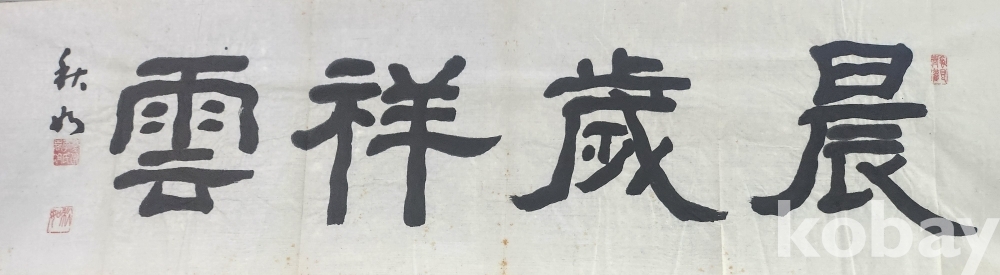 晨歲祥雲
秋
kobay